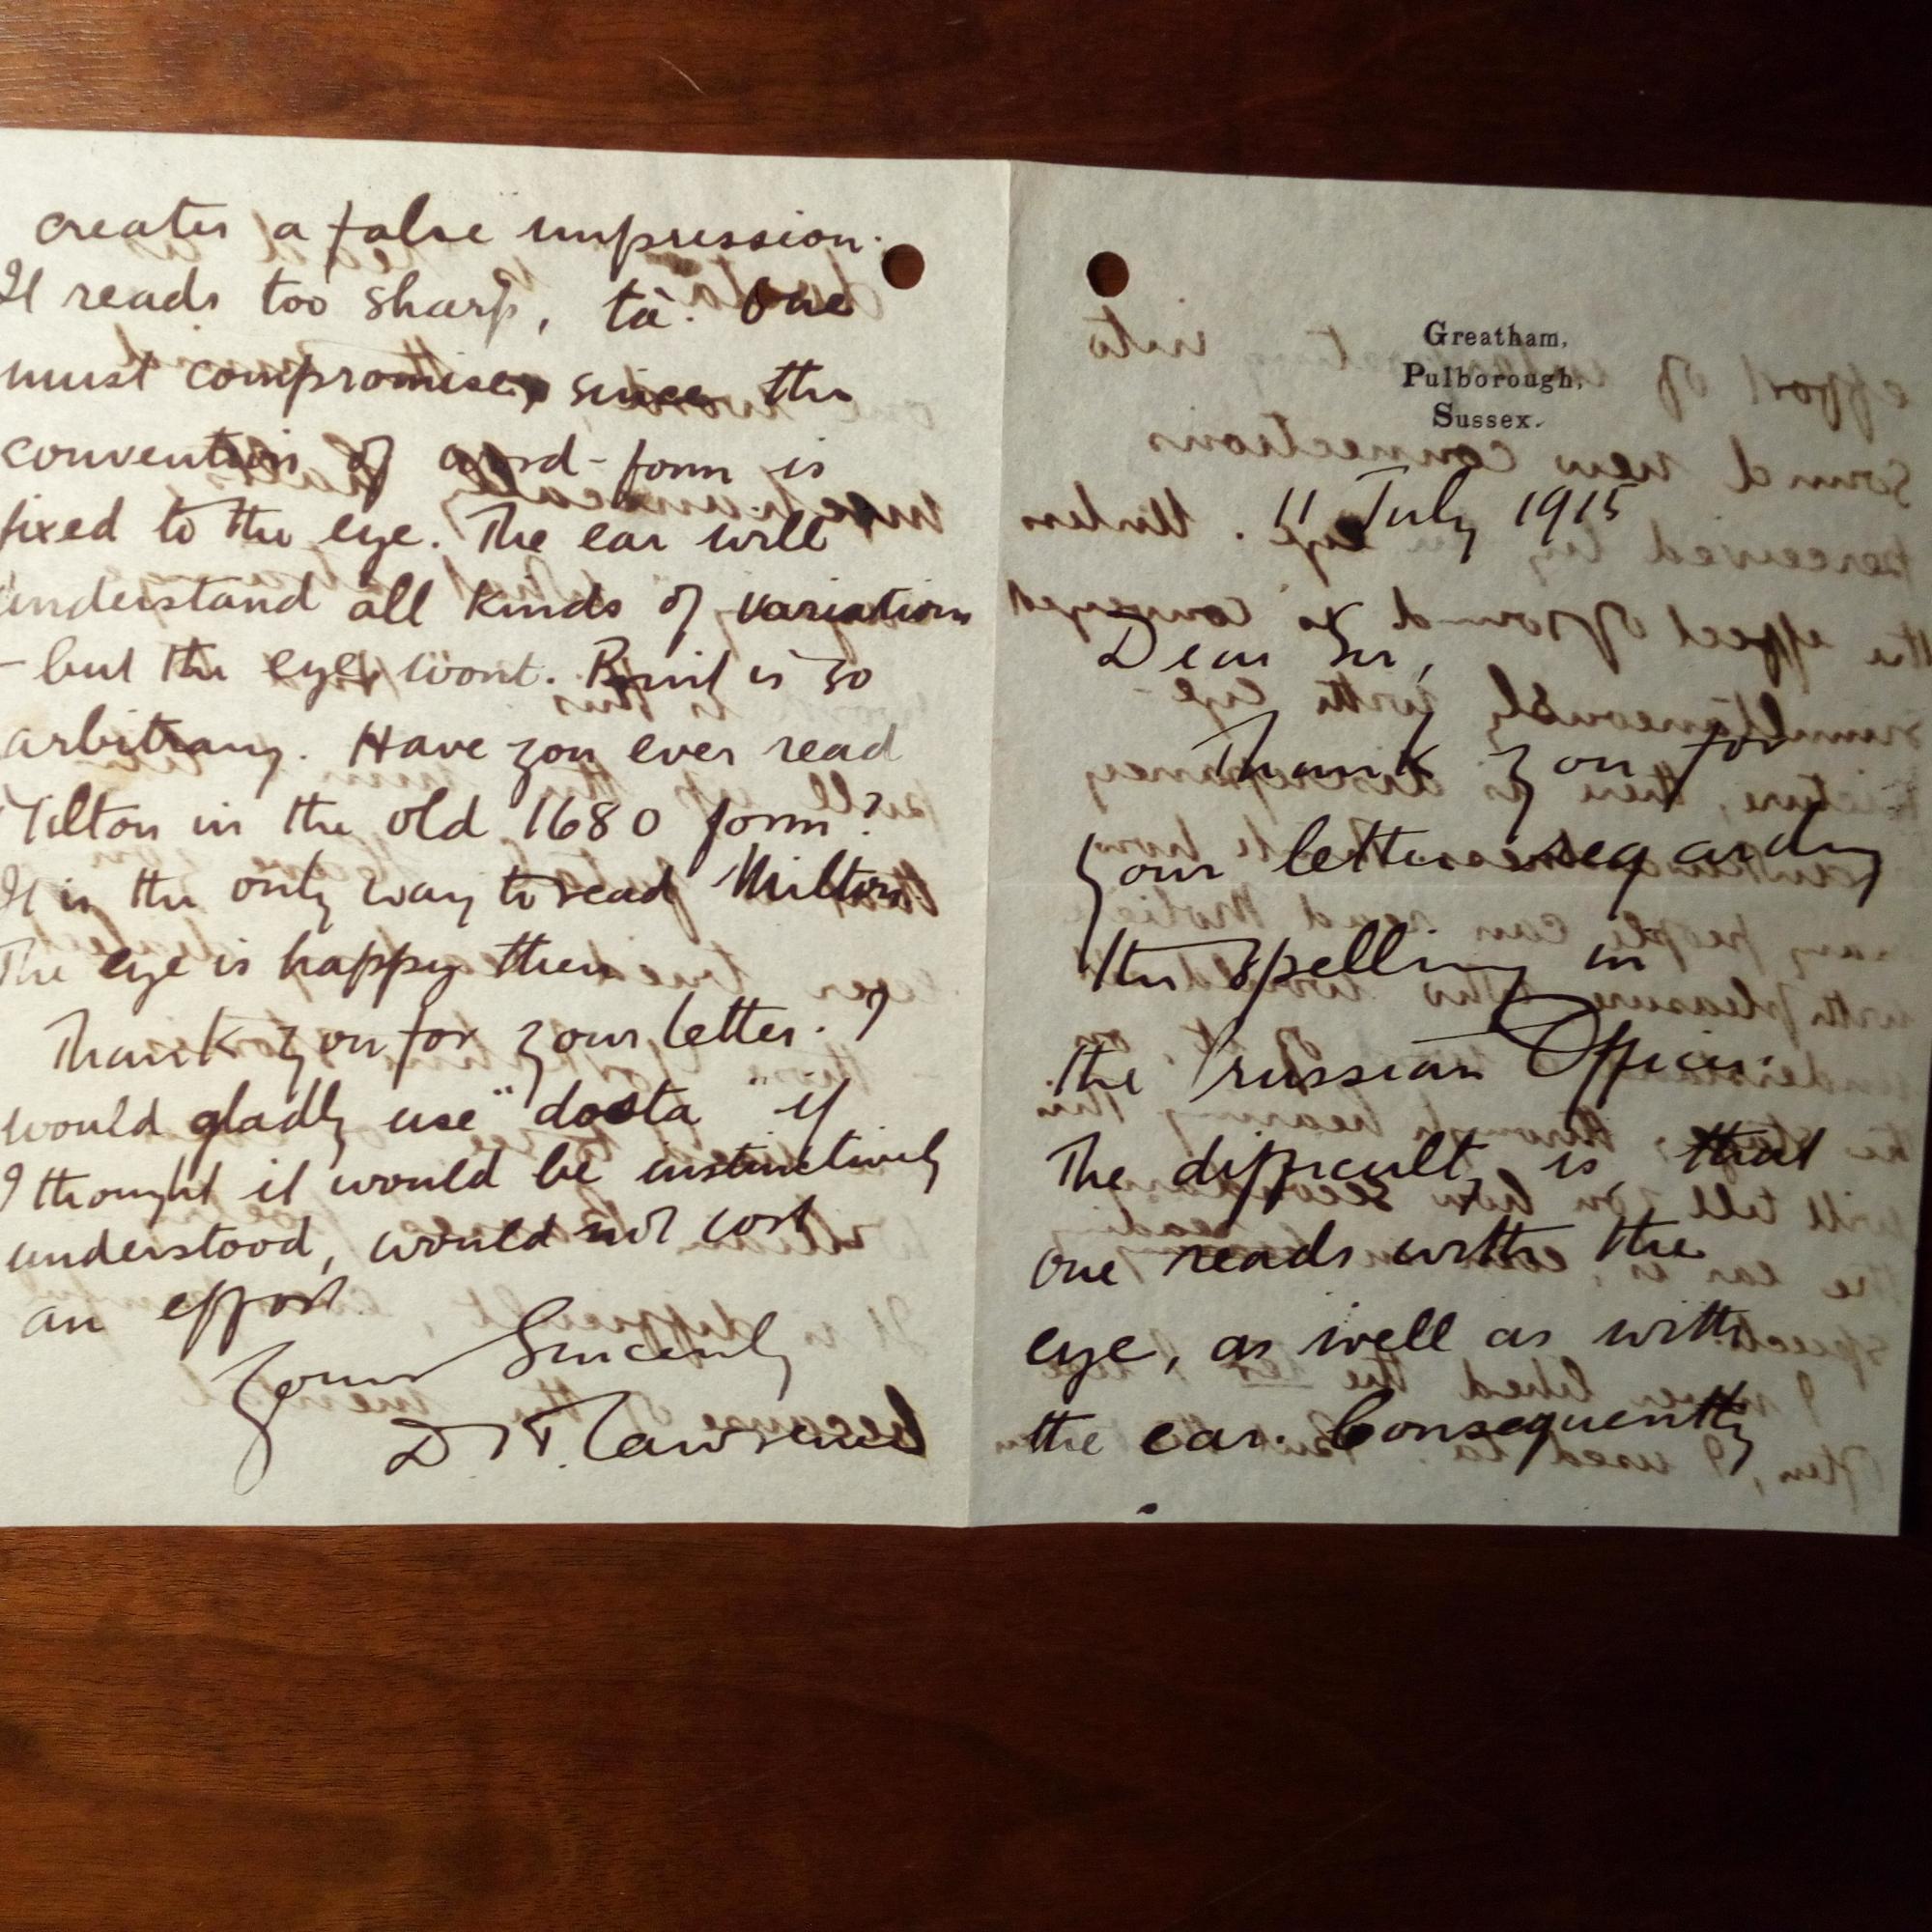 Greatham,
Pulborough,
Sussex.
11 July 1915
Dear Sir,
Thank you for
your letter regarding
the spelling in
the Prussian Officer.
The difficulty is, that
one reads with the
eye, as well as with
the ear. Consequently
creates a false impression.
It reads too sharp, ta. One
must compromise, since the
convention of word-form is
fixed to the eye. The ear will
understand all kinds of variations
- but the eye wont. Print is so
arbitrary. Have you ever read
Milton in the old 1680 form?
It is the only way to read Milton.
The eye is happy then
Thank you for your letter. I
would gladly use "dosta" if
I thought it would be instinctively
understood, would not cost
an effort.
Yours Sincerely
D. H. Lawrence